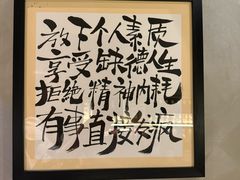 放下个人素质
享受缺德人生
拒绝精神内耗
有事直接发疯